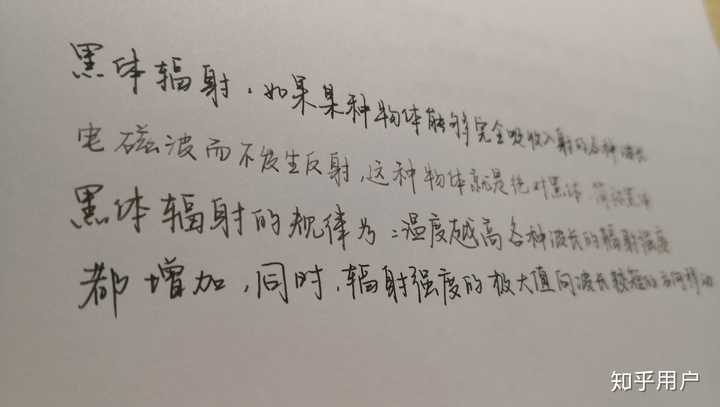 黑体辐射.如果某种物体能够完全吸收入射的各种波长
电磁波而不发生反射,这种物体就是绝对黑体 简称黑体
黑体辐射的规律为:温度越高各种波长的辐射强度
都增加,同时,辐射强度的极大值向波长较短的方向移动
知乎用户